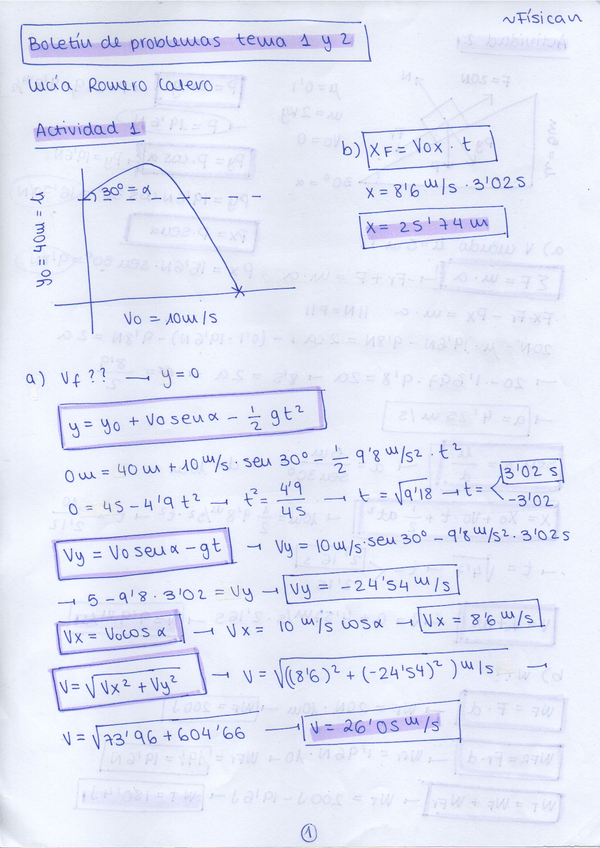 ~Física~
Boletín de problemas tema 1 y 2
Lucía Romero Calero
Actividad 1
30º = α
y₀ = 40m = h
V₀ = 10m/s
b) X_F = V₀x · t
x = 8'6 m/s · 3'02 s
x = 25'74 m
a) Vf ?? → y=0
y = y₀ + V₀ senα - 1/2 gt²
0m = 40m + 10 m/s · sen 30º - 1/2 9'8 m/s² · t²
0 = 45 - 4'9 t² → t² = 4'9/45 → t = √9'18 → t = < 3'02 s / -3'02
Vy = V₀ senα - gt → Vy = 10 m/s · sen 30º - 9'8 m/s² · 3'02 s
→ 5 - 9'8 · 3'02 = Vy → Vy = -24'54 m/s
Vx = V₀cosα → Vx = 10 m/s cosα → Vx = 8'6 m/s
V = √Vx² + Vy² → V = √((8'6)² + (-24'54)²) m/s →
V = √73'96 + 604'66 → V = 26'05 m/s
1